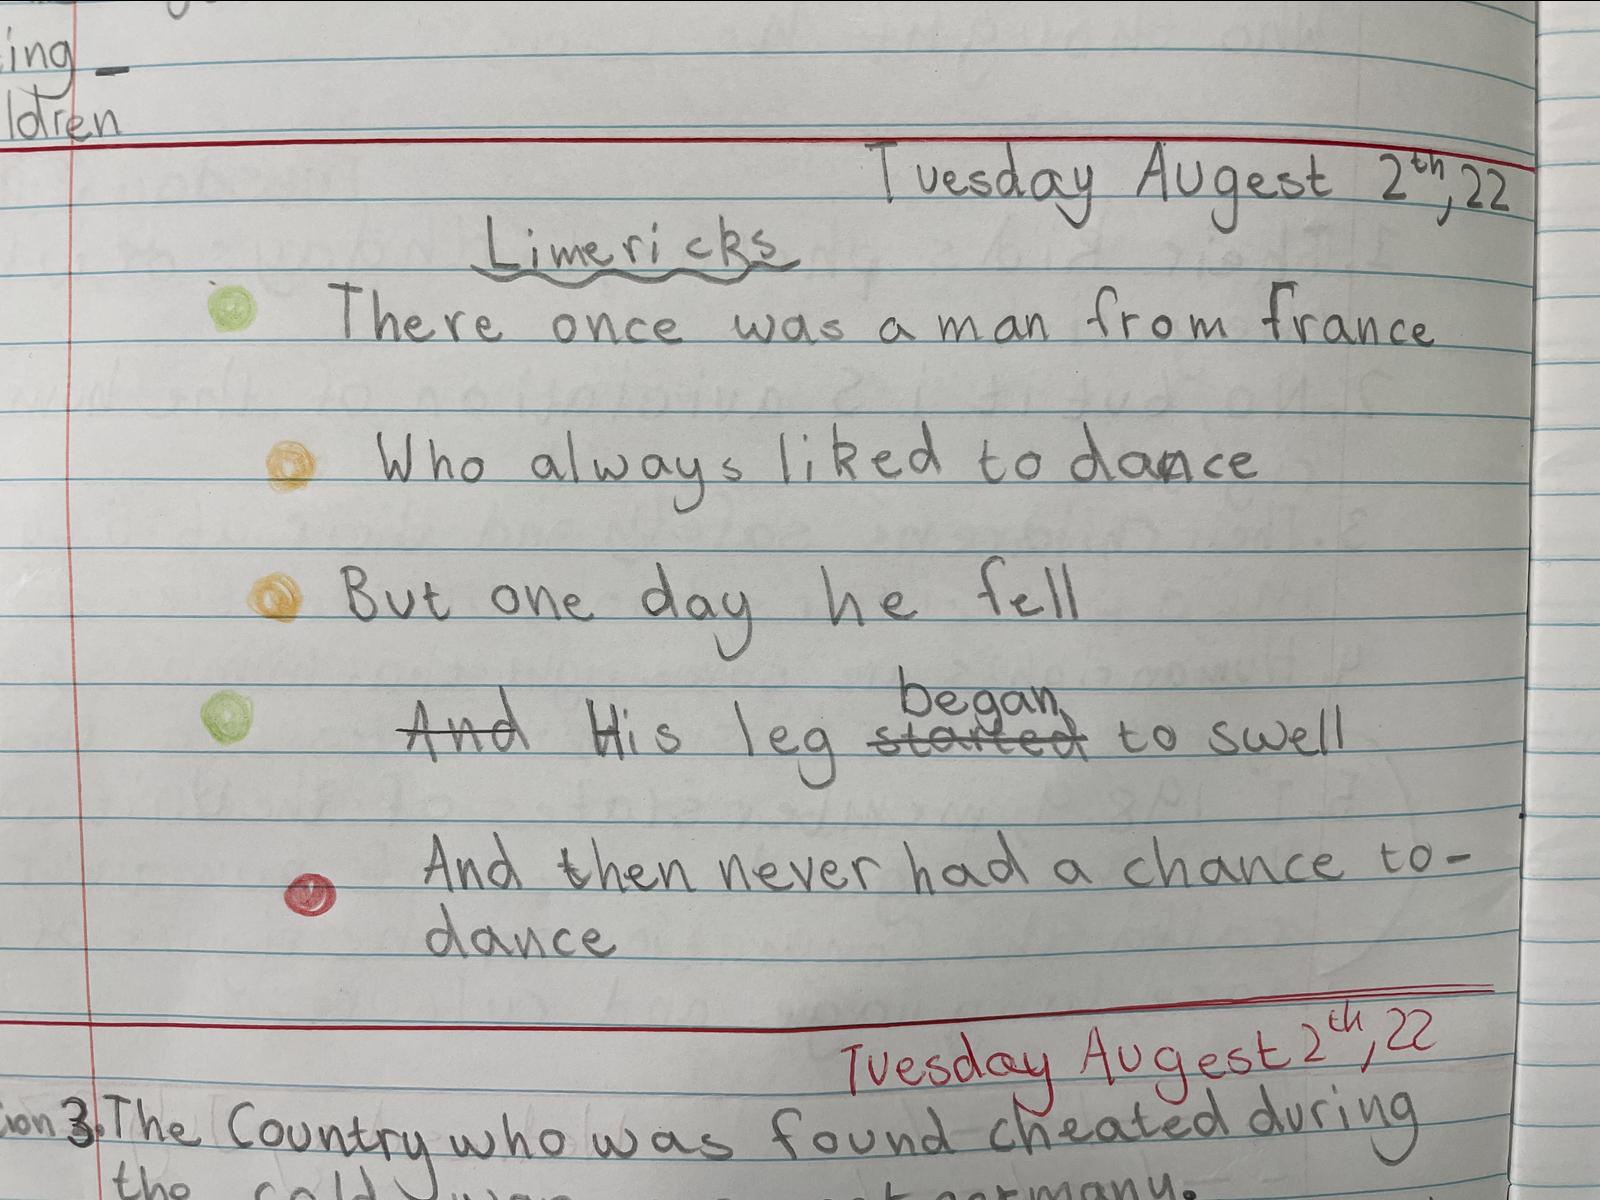 ing -
ldren
Tuesday Augest 2th, 22
Limericks
There once was a man from france
Who always liked to dance
But one day he fell
And His leg started began to swell
And then never had a chance to-
dance
Tuesday Augest 2th, 22
ion 3. The Country who was found cheated during
the cold war germany.